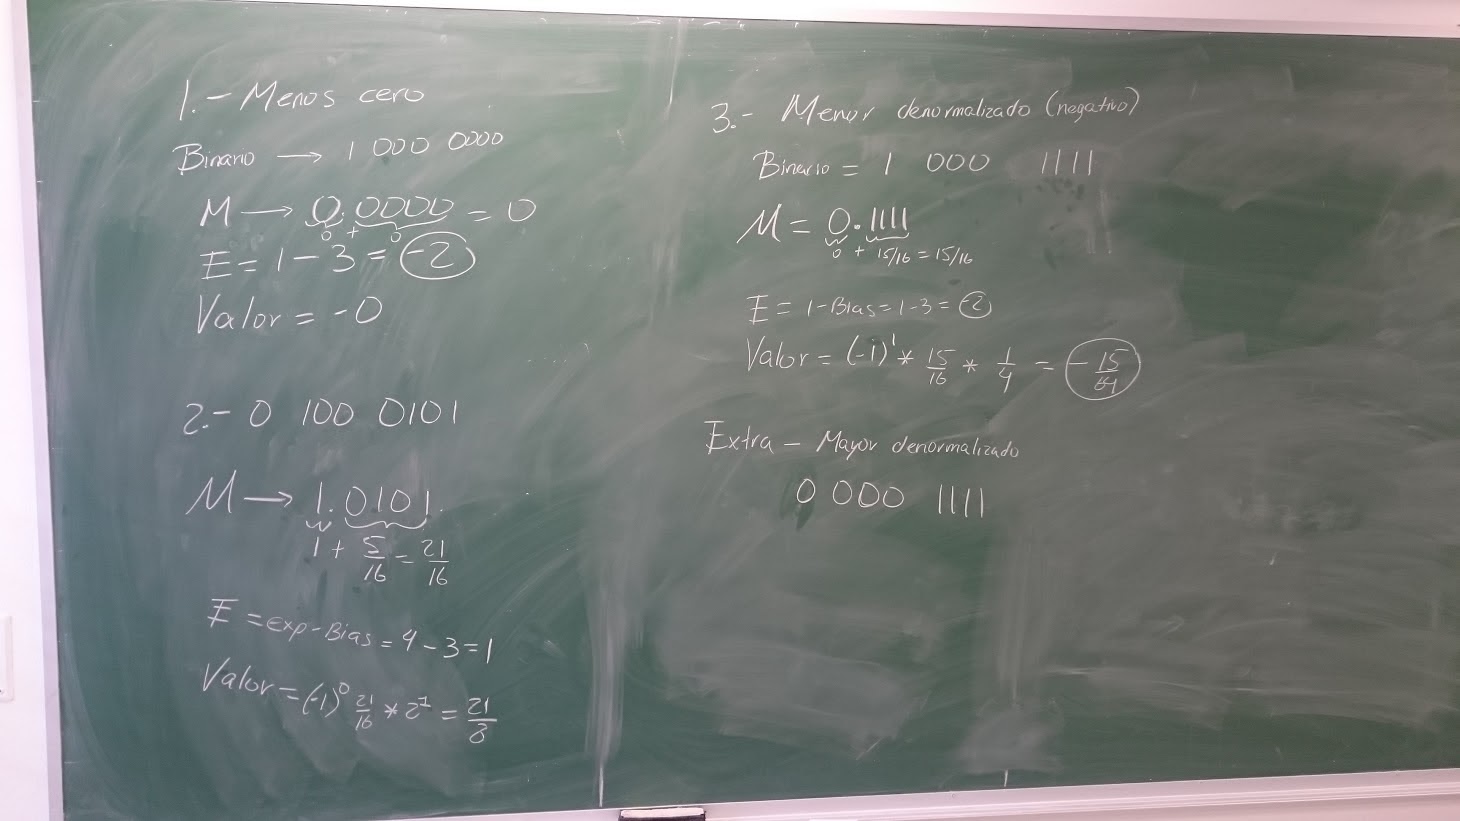 1.- Menos cero
Binario → 1 000 0000
M → 0.0000 = 0
0 + 0
E = 1 - 3 = -2
Valor = -0
2.- 0 100 0101
M → 1.0101
1 + 5/16 = 21/16
E = exp-Bias = 4 - 3 = 1
Valor = (-1)^0 21/16 * 2^1 = 21/8
3.- Menor denormalizado (negativo)
Binario = 1 000 1111
M = 0.1111
0 + 15/16 = 15/16
E = 1-Bias = 1-3 = -2
Valor = (-1)^1 * 15/16 * 1/4 = -15/64
Extra - Mayor denormalizado
0 000 1111